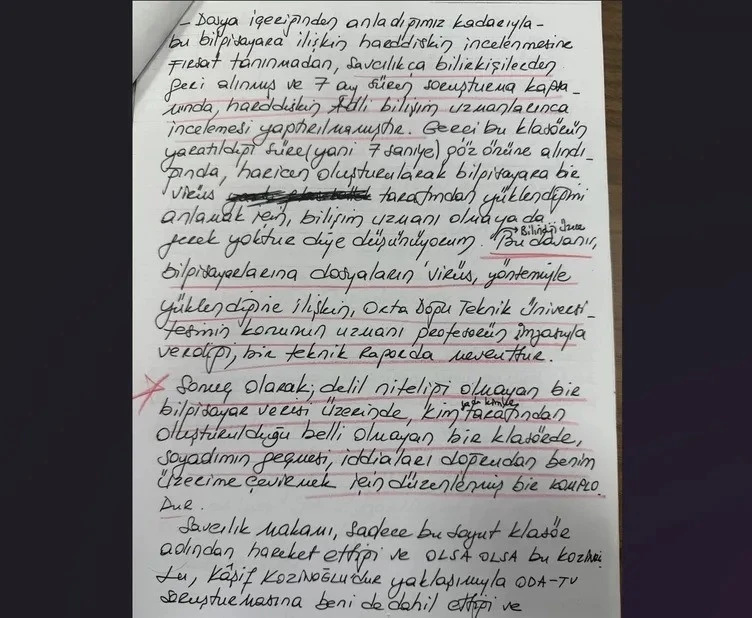 - Dosya içeriğinden anladığımız kadarıyla -
bu bilgisayara ilişkin harddiskin incelenmesine
fırsat tanınmadan, savcılıkça bilirkişilerden
geri alınmış ve 7 ay süren soruşturma kapsa-
mında, harddiskin Adli bilişim uzmanlarınca
incelemesi yaptırılmamıştır. Gerçi bu klasörün
yaratıldığı süre (yani 7 saniye) göz önüne alındı-
ğında, haricen oluşturularak bilgisayara bir
virüs tarafından yüklendiğini
anlamak için, bilişim uzmanı olmaya da
gerek yoktur diye düşünüyorum. Bilindiği üzere
"Bu davanın,
bilgisayarlarına dosyaların virüs, yöntemiyle
yüklendiğine ilişkin, Orta Doğu Teknik Üniversi-
tesinin konunun uzmanı profesörün imzasıyla
verdiği, bir teknik raporda mevcuttur.
Sonuç olarak; delil niteliği olmayan bir
bilgisayar verisi üzerinde, kim yada kimler tarafından
oluşturulduğu belli olmayan bir klasörde,
soyadımın geçmesi, iddiaları doğrudan benim
üzerime çevirmek için düzenlenmiş bir KOMPLO
DUR.
Savcılık makamı, sadece bu soyut klasör
adından hareket ettiği ve OLSA OLSA bu Kozinoğ
lu, Kâşif KOZİNOĞLU'dur yaklaşımıyla ODA-TV
soruşturmasına beni de dahil ettiği ve